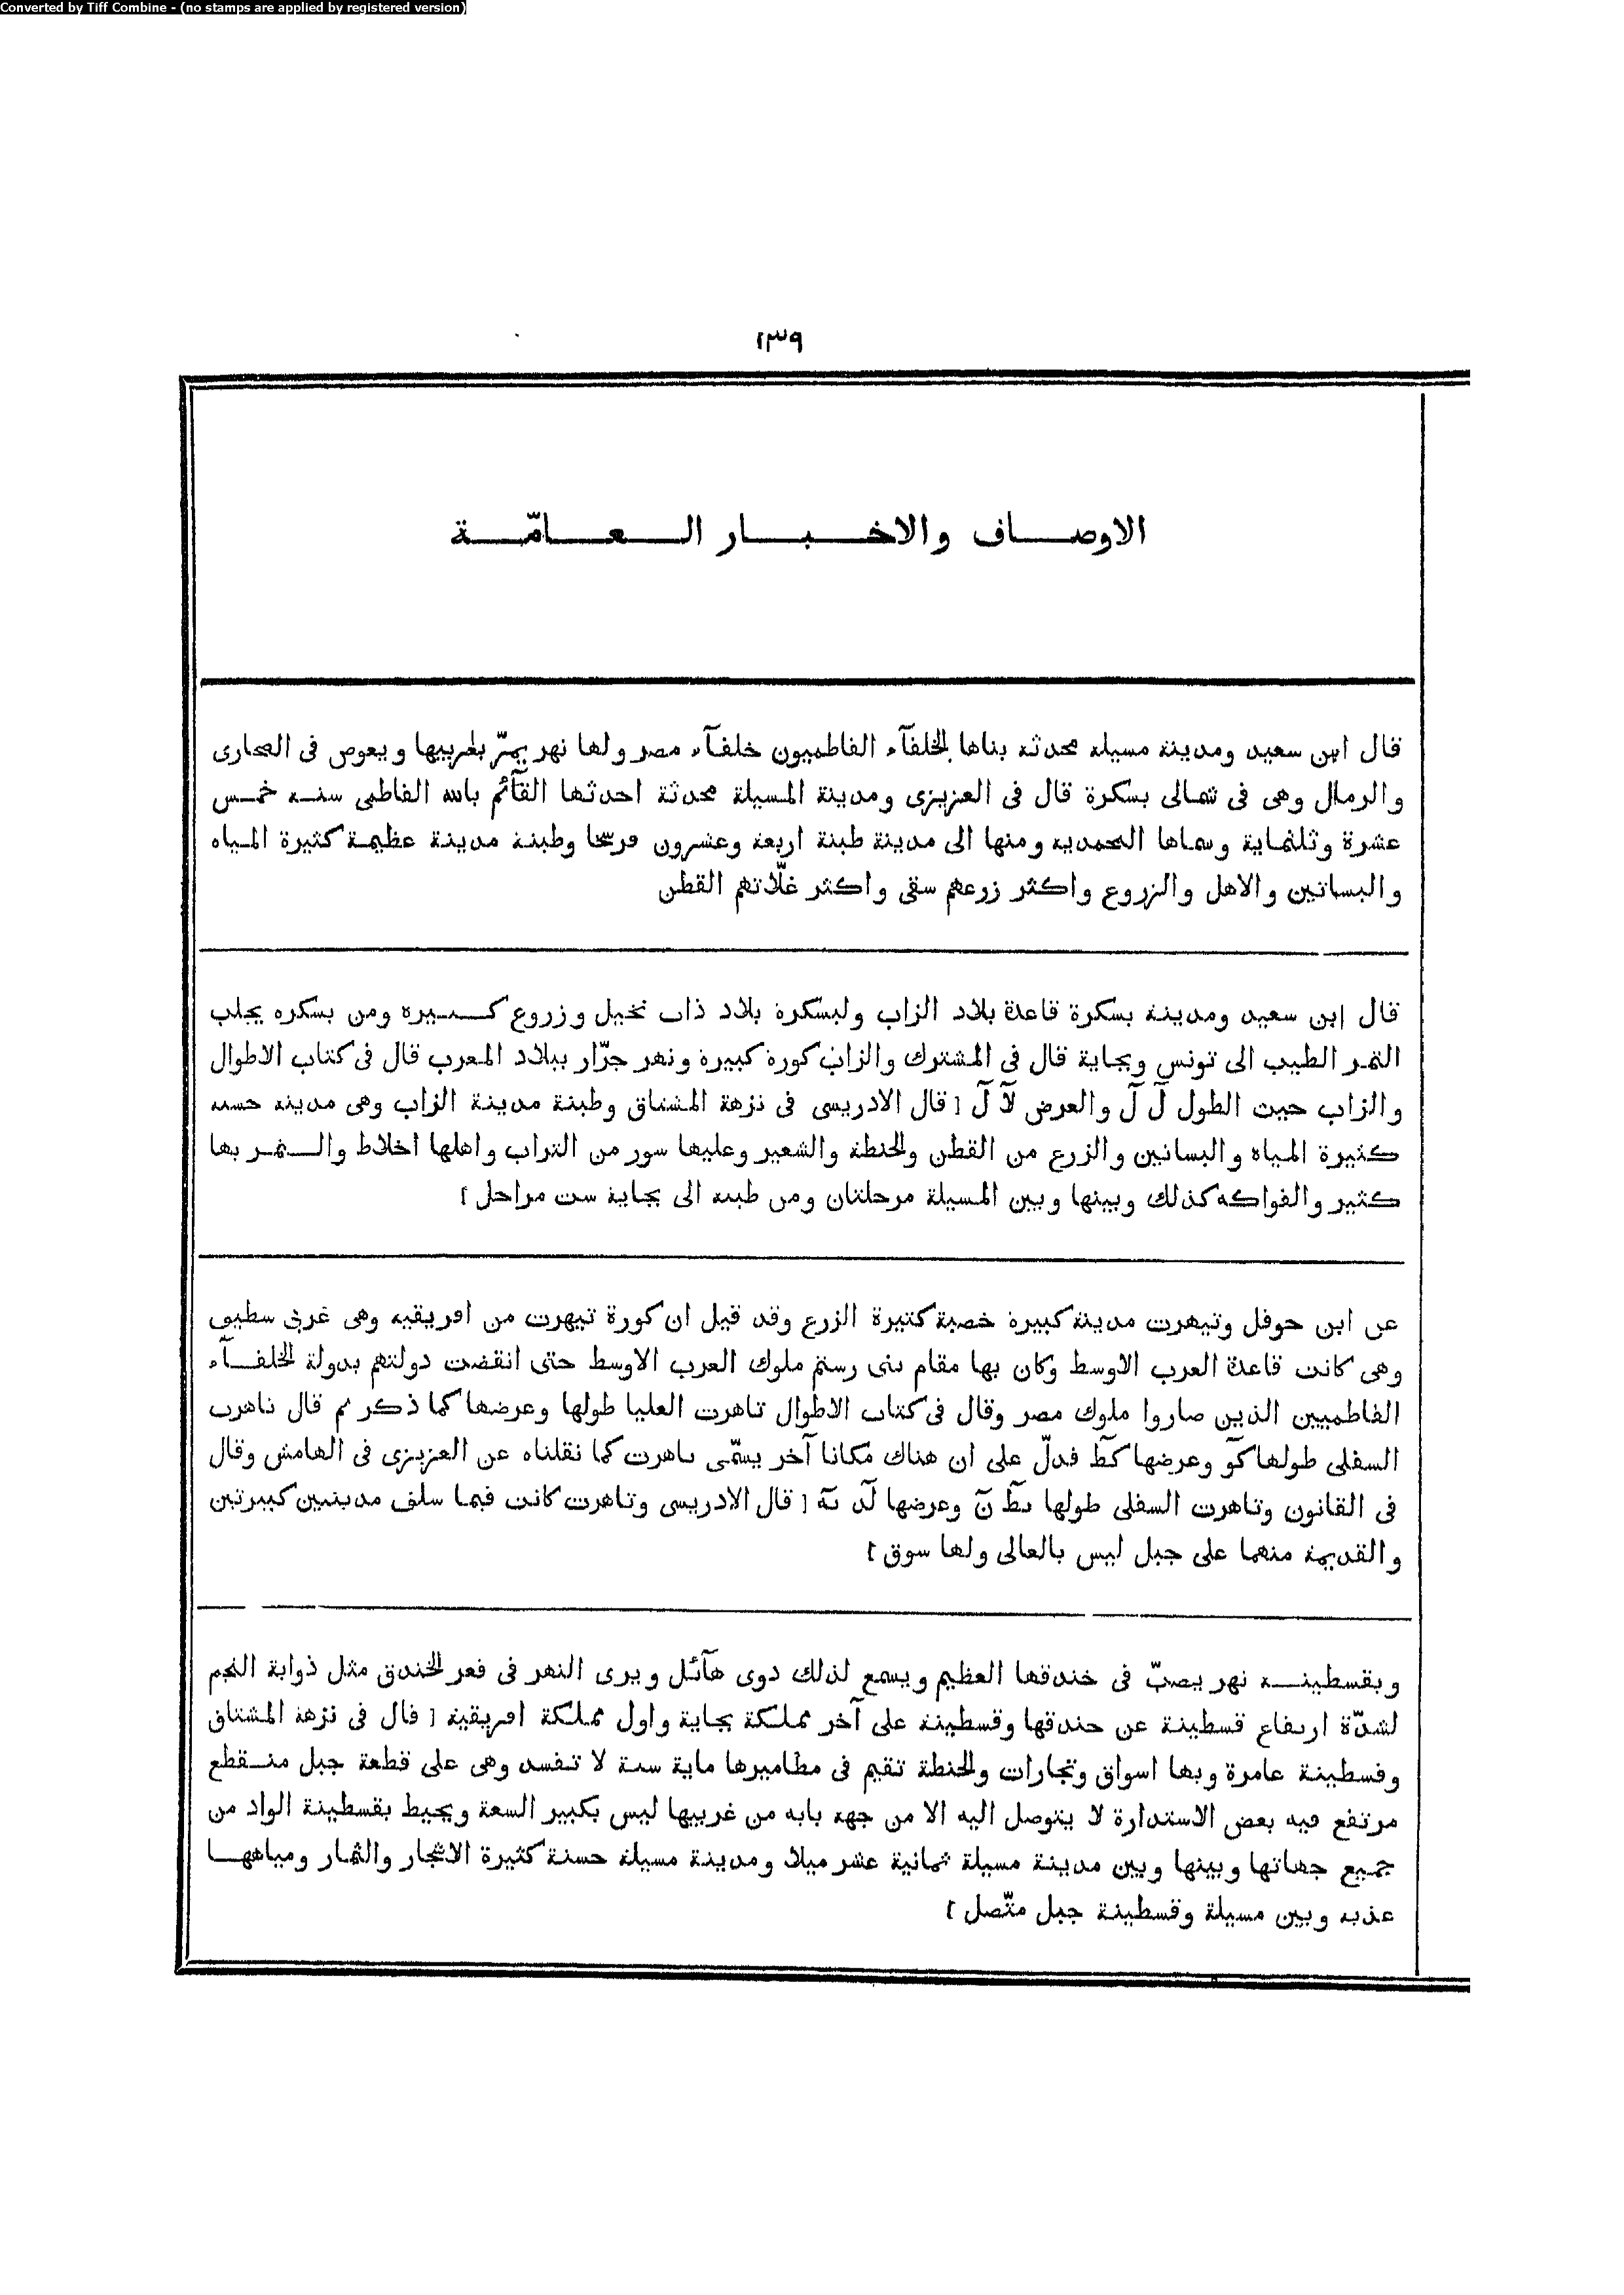 Converted by Tiff Combine - (no stamps are applied by registered version)
١٣٩
الاوصاف والاخبار العامّة
قال ابن سعيد ومدينة مسيلة محدثة بناها الخلفآء الفاطميون خلفآء مصر ولها نهر يمرّ بغربيها ويغوص فى الصحارى
والرمال وهى فى شمالى بسكرة قال فى العزيزى ومدينة المسيلة محدثة احدثها القآئم بالله الفاطمى سنة خمس
عشرة وثلثماية وسماها المحمدية ومنها الى مدينة طبنة اربعة وعشرون فرسخا وطبنة مدينة عظيمة كثيرة المياه
والبساتين والاهل والزروع واكثر زرعهم سقى واكثر غلّاتهم القطن
قال ابن سعيد ومدينة بسكرة قاعدة بلاد الزاب ولبسكرة بلاد ذات نخيل وزروع كثيرة ومن بسكره يجلب
التمر الطيب الى تونس وبجاية قال فى المشترك والزاب كورة كبيرة ونهر جرّار ببلاد المغرب قال فى كتاب الاطوال
والزاب حيث الطول لَ لَ والعرض لاَ لَ [ قال الادريسى فى نزهة المشتاق وطبنة مدينة الزاب وهى مدينة حسنة
كثيرة المياه والبساتين والزرع من القطن والحنطة والشعير وعليها سور من التراب واهلها اخلاط والتمر بها
كثير والفواكه كذلك وبينها وبين المسيلة مرحلتان ومن طبنة الى بجاية ست مراحل ]
عن ابن حوقل وتيهرت مدينة كبيرة خصبة كثيرة الزرع وقد قيل ان كورة تيهرت من افريقية وهى غربى سطيف
وهى كانت قاعدة الغرب الاوسط وكان بها مقام بنى رستم ملوك الغرب الاوسط حتى انقضت دولتهم بدولة الخلفآء
الفاطميين الذين صاروا ملوك مصر وقال فى كتاب الاطوال تاهرت العليا طولها وعرضها كما ذكر ثم قال تاهرت
السفلى طولها كوَ وعرضها كطَ فدلّ على ان هناك مكانا آخر يسمّى تاهرت كما نقلناه عن العزيزى فى الهامش وقال
فى القانون وتاهرت السفلى طولها يطَ نَ وعرضها لدَ يهَ [ قال الادريسى وتاهرت كانت فيما سلف مدينتين كبيرتين
والقديمة منهما على جبل ليس بالعالى ولها سوق ]
وبقسطينة نهر يصبّ فى خندقها العظيم ويسمع لذلك دوى هآئل ويرى النهر فى قعر الخندق مثل ذوابة النجم
لشدّة ارتفاع قسطينة عن خندقها وقسطينة على آخر مملكة بجاية واول مملكة افريقية [ قال فى نزهة المشتاق
وقسطينة عامرة وبها اسواق وتجارات والحنطة تقيم فى مطاميرها ماية سنة لا تفسد وهى على قطعة جبل منقطع
مرتفع فيه بعض الاستدارة لا يتوصل اليه الا من جهة بابه من غربيها ليس بكبير السعة ويحيط بقسطينة الواد من
جميع جهاتها وبينها وبين مدينة مسيلة ثمانية عشر ميلا ومدينة مسيلة حسنة كثيرة الاشجار والثمار ومياهها
عذبه وبين مسيلة وقسطينة جبل متّصل ]